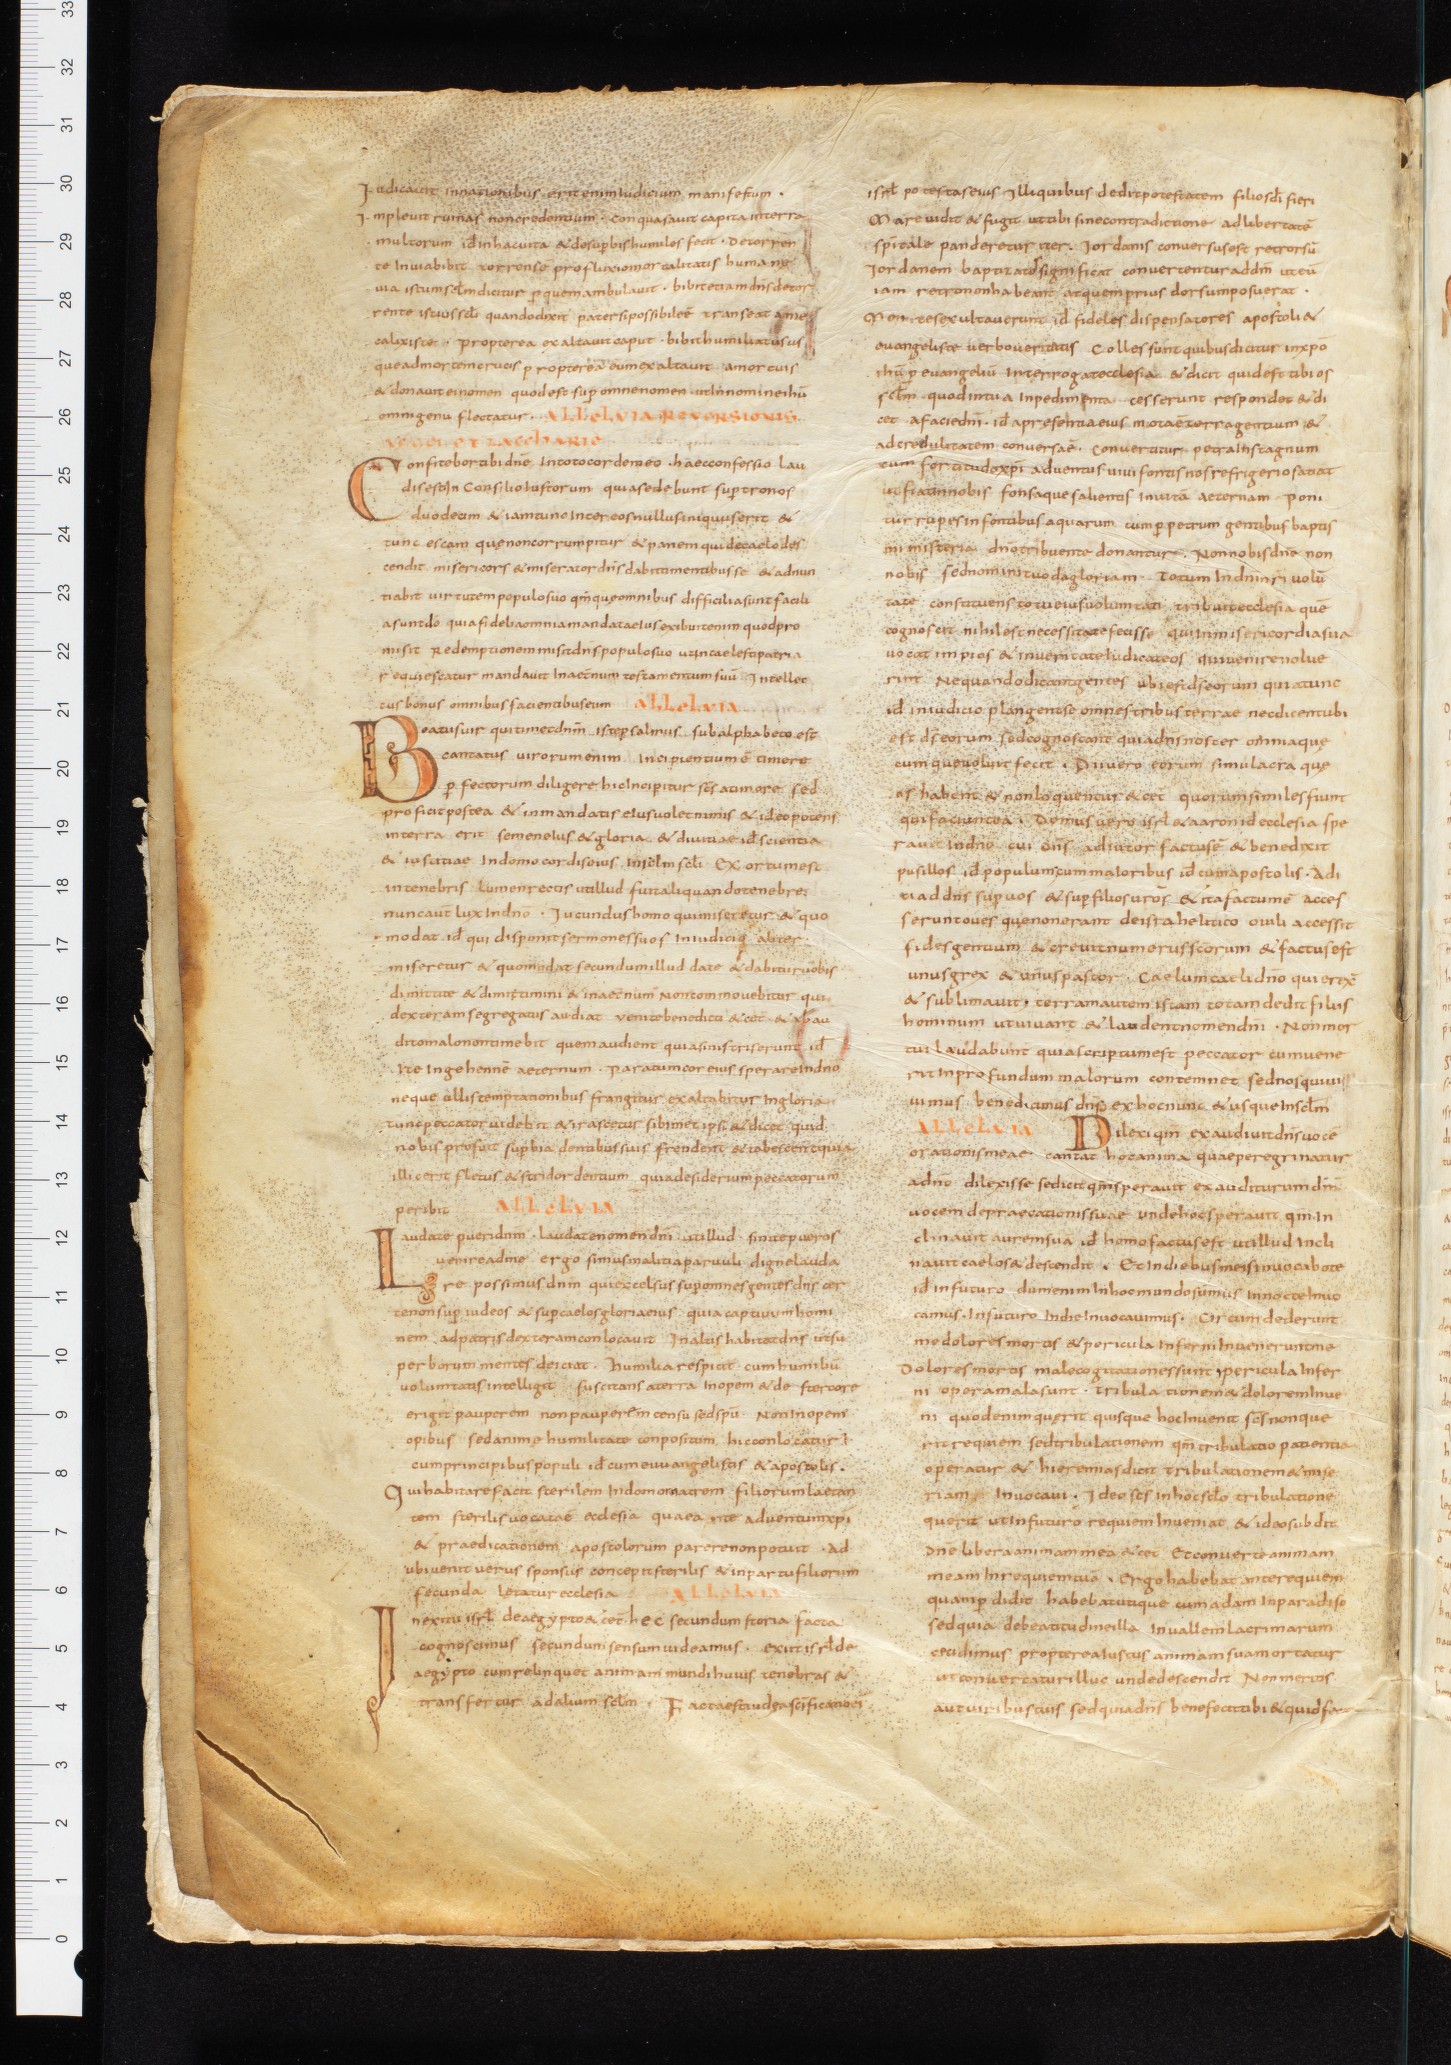 Iudicavit innationibus · erit enim iudicium manifestum ·
Implevit ruinas noncredentium · conquasavit capita interra
multorum id̄ inhacvita & desup̄bis humiles fecit · Detorren
te Inviabibit torrens ē profluxio mortalitatis humanę
via istum scl̄m dicitur p̄quem ambulavit · bibit etiam dn̄s detor
rente istius scl̄i quando dixit pater si possibile ē transeat ame
calix iste · Propterea exaltavit caput · bibit humiliatus us
que ad mortem crucis propterea eum exaltavit amortuis
& donavit ei nomen quod est sup̄ omne nomen ut in nomine ihū
omni genu flectatur · ALLELVIA REVERSIONIS
AGGEI ET ZACCHARIE
Confitebor tibi dn̄e Intoto corde meo · haec confessio lau
dis est In Consilio Iustorum quia sedebunt sup̄ tronos
duodecim & iam tunc Inter eos nullus iniquus erit &
tunc escam quę non corrumpitur & panem qui decaelo des
cendit misericors & miserator dn̄s dabit timentibus se & adnun
tiabit virtutem populo suo qm̄ quę omnibus difficilia sunt facili
a sunt do quia fidel omnia mandata eius exibuit enim quod pro
misit Redemptionem misit dn̄s populo suo ut In caelesti patria
requiescatur mandavit In aeternum testamentum suū Intellec
tus bonus omnibus facientibus eum ALLELVIA
Beatus vir qui timet dn̄m iste psalmus sub alphabeto est
cantatus virorum enim Incipientium ē timere
p̄fectorum diligere hic Incipitur scs̄ atimore sed
proficit postea & in mandatis eius volet nimis & ideo potens
in terra erit semen eius & gloria & divitiae id̄ scientia
& iustitiae In domo cordis eius Inscl̄m scl̄i Exortum est
in tenebris lumen rectis ut illud fuit aliquando tenebrę
nunc aūt lux In dn̄o · Iucundus homo qui miseretur & quo
modat id̄ qui disponit sermones suos In iudicio aliter
miseretur & quomodat secundum illud date & dabitur vobis
dimittite & dimittimini & in aeternum Non commovebitur qui
dexteram segregatus audiat venite benedicti & cet̄ & ab au
ditu malo non timebit quem audient quia sinistris erunt id̄
Ite In gehennē aeternum · Paratum cor eius sperare In dn̄o
neque ullis temptationibus frangitur exaltabitur In gloria
tunc peccator videbit & irascetur sibimet ipsi & dicet quid
nobis profuit sup̄bia dentibus suis frendent & tabescent quia
illic erit fletus & stridor dentium quia desiderium peccatorum
peribit ALLELVIA
Laudate pueri dn̄m · laudate nomen dn̄i ut illud sinite pueros
venire ad me ergo simus malitia parvuli digne lauda
re possimus dn̄m qui excelsus sup̄ omnes gentes dn̄s cer
te non sup̄ iudeos & sup̄ caelos gloria eius quia captivum homi
nem ad patris dexteram conlocavit In altis habitat dn̄s ut su
perborum mentes deiciat · humilia respicit cum humibu
voluntatis intelligit suscitans aterra Inopem & de stercore
erigit pauperem non pauperem censu sed sp̄u Non In opem
opibus sed anime humilitate conpositum hic conlocatur
cum principibus populi id̄ cum euuangelistis & apostolis ·
Qui habitare facit sterilem In domo matrem filiorum laetan
tem sterilis vocata ē ecclesia quae ante adventum xp̄i
& praedicationem apostolorum parere non potuit · Ad
ubi venit verus sponsus concepit sterilis & in partu filiorum
fecunda letatur ecclesia ALLELVIA
In exitu isrl̄ de aegypto & cet̄ hec secundum storia facta
cognoscimus secundum sensum videamus · exiit isrl̄ de
aegypto cum relinquet animam mundi huius tenebras &
transfertur ad alium scl̄m · Facta est iudea scificatio ei
isrl̄ potestas eius Illi quibus dedit potestatem filios dī fieri
Mare vidit & fugit ut tibi sine contradictione ad libertatē
sp̄itale panderetur iter · Iordanis conversus est retrorsū
Iordanem baptizatos significat convertentur ad dm̄ ut eū
iam retro non habeant at quem prius dorsum posuerat ·
Montes exultaverunt id̄ fideles dispensatores apostoli &
evangeliste verbo veritatis Colles sunt quibus dicitur in xp̄o
ihū p̄ evangeliū Interrogat ecclesia & dicit quid est tibi os
scl̄m · quod in tua Inpedimenta cesserunt respondet & di
cet afacie dn̄i · id̄ apresentia eius mota ē terra gentium &
ad credulitatem conversa ē · convertitur petra In stagnum
cum fortitudo xp̄i adventus vivi fontis nos refrigerio satiat
ut fiat in nobis fons aque salientis In vitā aeternam Poni
tur rupes in fontibus aquarum cum p̄ petrum gentibus baptis
mi misteria dn̄o tribuente donantur · Non nobis dn̄e non
nobis sed nomini tuo da gloriam · totum In dn̄i nr̄i volū
tate constituens totu eius voluntati tribuit ecclesia quē
cognoscit nihil est necessitate fecisse qui In misericordia sua
vocat impios & in veritate Iudicat eos qui venire nolue
rint Nequando dicant gentes ubi est ds̄ eorum quia tunc
id̄ in iudicio plangent se omnes tribus terrae nec dicent ubi
est ds̄ eorum sed cognoscant quia dn̄s noster omnia que
cumque voluit fecit · Dii vero eorum simulacra que
os habent & non loquentur & cet̄ quorum similes fiunt
qui faciunt ea · Domus vero isrl̄ & aaron id̄ ecclesia spe
ravit In dn̄o cui dn̄s adiutor factus ē & benedixit
pusillos id̄ populum cum maioribus id̄ cum apostolis · Adi
tiad dn̄s sup̄ vos & sup̄ filios vr̄os & ita factum ē acces
serunt oves quę non erant de israhelitico ovili accessit
fides gentium & crevit numerus scorum & factus est
unus grex & unus pastor · Caelum caeli dn̄o qui erex
& sublimavit · terram autem istam totam dedit filiis
hominum ut vivant & laudent nomen dn̄i · Non mor
tui laudabunt quia scriptum est peccator cum vene
rit In profundum malorum contemnet sed nos qui vi
vimus benedicimus dn̄o ex hoc nunc & usque In scl̄m
ALLELVIA Dilexi qm̄ exaudivit dn̄s vocē
orationis meae cantat hoc anima quae peregrinatur
adn̄o dilexisse se dicit qm̄ speravit exauditurum dn̄m
vocem depraecationis suae unde hoc speravit qm̄ In
clinavit aurem sua id̄ homo factus est ut illud Incli
navit caelos & descendit · Et In diebus meis invocabo te
id̄ in futuro dum enim In hoc mundo sumus In nocte Invo
camus · In futuro In die Invocavimus · Circumdederunt
me dolores mortis & pericula Inferni Invenerunt me
Dolores mortis male cogitationes sunt · pericula Infer
ni opera mala sunt · tribulationem & dolorem Inve
ni quod enim querit quisque hoc Invenit scs̄ non que
rit requiem sed tribulationem qm̄ tribulatio patientia
operatur & hieremias dicit tribulationem & mise
riam Invocavi · Ideo scs̄ in hoc scl̄o tribulatione
querit ut In futuro requiem Inveniat & ideo subdit
Dn̄e libera animam mea & cet̄ Et convertere animam
meam In requiem tua · Ergo habebat ante requiem
quam p̄didit habebat utique cum adam In paradiso
sed quia de beatitudine illa In vallem lacrimarum
cecidimus propterea Iustus animam suam ortatur
ut convertatur illuc unde descendit Non meritis
aut viribus tuis sed quia dn̄s benefecit tibi & quid fec